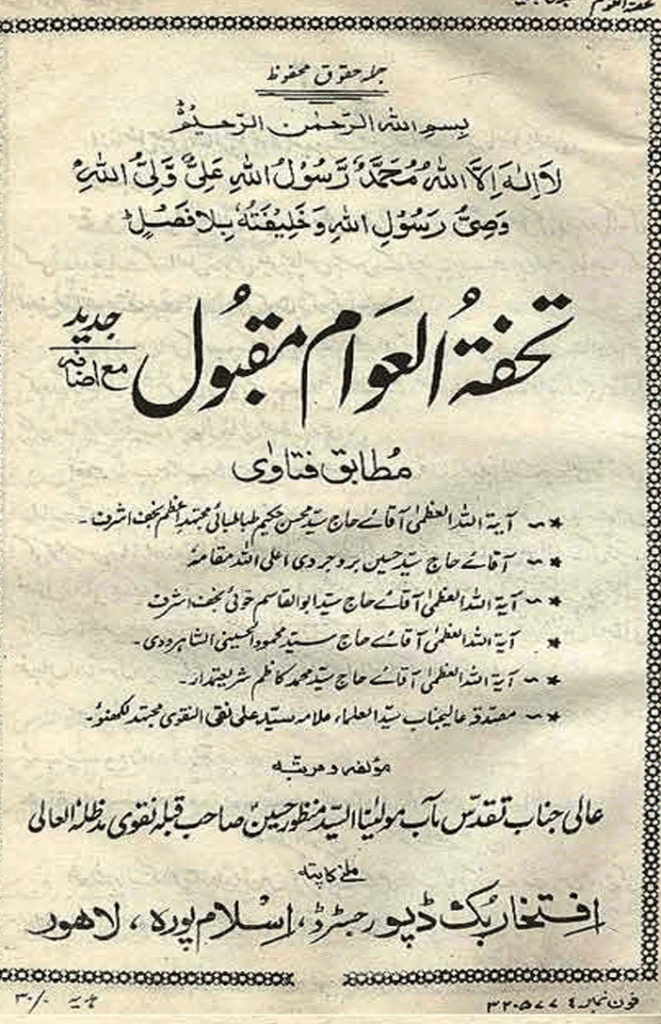 جملہ حقوق محفوظ
بِسْمِ اللهِ الرَّحْمٰنِ الرَّحِيْمِ
لَا اِلٰهَ اِلَّا اللهُ مُحَمَّدٌ رَّسُوْلُ اللهِ عَلِىٌّ وَّلِىُّ اللهِ
وَصِىُّ رَسُوْلِ اللهِ وَخَلِيْفَتُهٗ بِلَا فَصْلٍ
تحفۃُ العَوام مقبُول جدید
مع اضافہ
مُطابق فتاوٰی
* — آیۃ اللہ العظمیٰ آقائے حاج سیّد محسن حکیم طباطبائی مجتہد اعظم نجف اشرف۔
* — آقائے حاج سیّد حسین بروجردی اعلی اللہ مقامہٗ
* — آیۃ اللہ العظمیٰ آقائے حاج سیّد ابوالقاسم خوئی نجف اشرف
* — آیۃ اللہ العظمیٰ آقائے حاج سیّد محمود الحسینی الشاہرودی۔
* — آیۃ اللہ العظمیٰ آقائے حاج سیّد محمد کاظم شریعتمدار۔
* — مصدقہ عالیجناب سیّد العلماء علامہ سیّد علی نقی النقوی مجتہد لکھنوٴ۔
مؤلفہ و مرتبہ
عالی جناب تقدّس مآب مولٰینا السیّد منظور حسین صاحب قبلہ نقوی مدظلہٗ العالی
ملنے کا پتہ
افتخار بک ڈپو رجسٹرڈ، اسلام پورہ، لاھور
فون نمبر ۳۲۰۵۷۷۴
ہدیہ ۳۰/۰